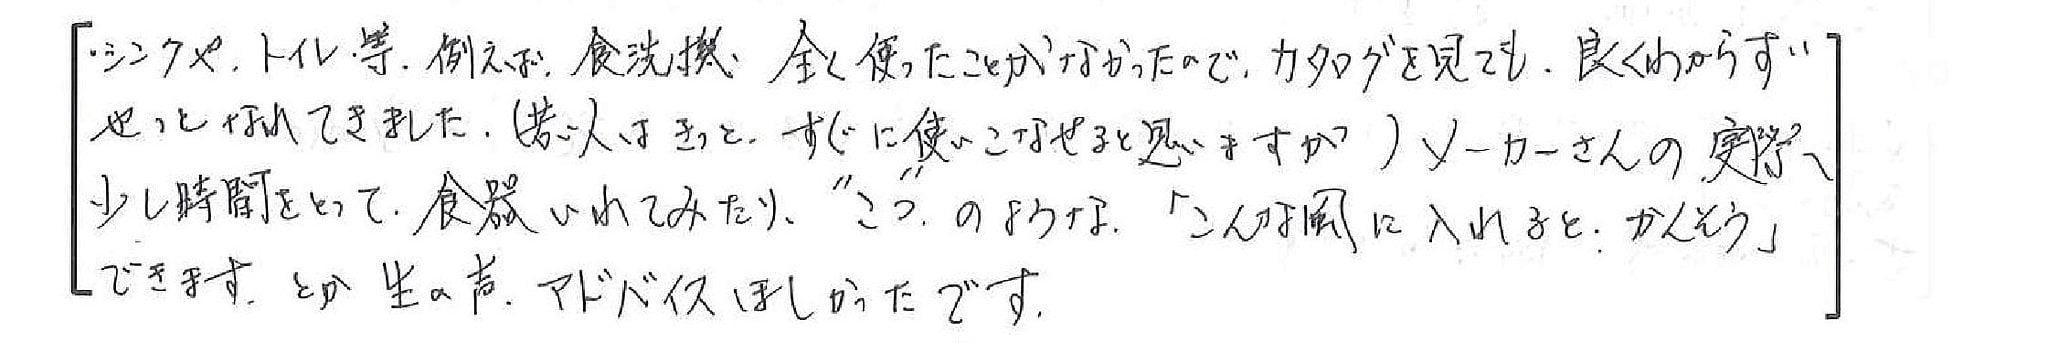 ・シンクや、トイレ等、例えば、食洗機、全く使ったことがなかったので、カタログを見ても、良くわからず‥
やっとなれてきました。(若い人はきっと、すぐに使いこなせると思いますが)メーカーさんの実際、
少し時間をとって、食器いれてみたり、"こつ"のような、「こんな風に入れると、かんそう」
できます。とか生の声、アドバイスほしかったです。